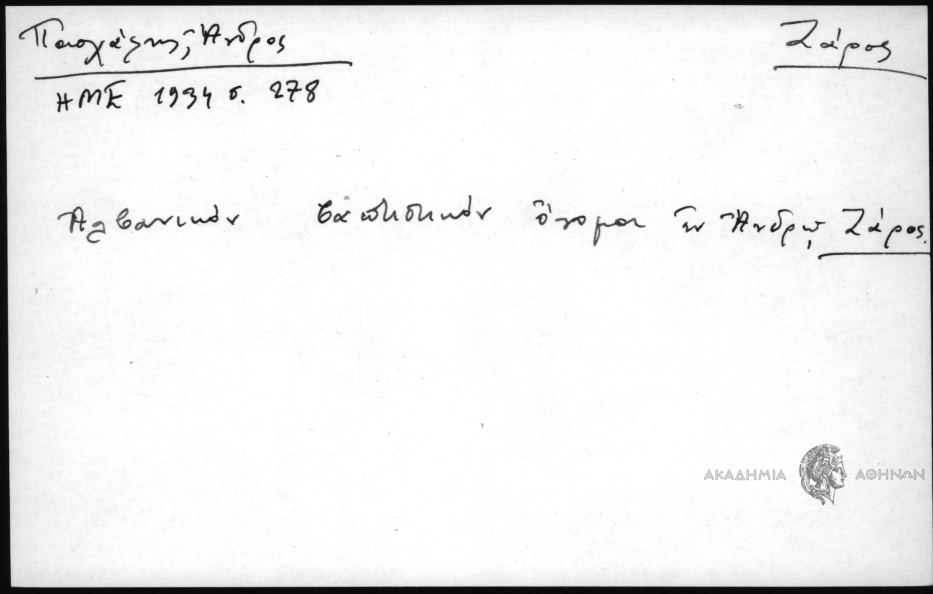 Πασχάλης, Ἄνδρος
Ζάρος
ΗΜΕ 1934 σ. 278
Ἀλβανικὸν βαπτιστικὸν ὄνομα ἐν Ἄνδρῳ, Ζάρος.
ΑΚΑΔΗΜΙΑ ΑΘΗΝΩΝ